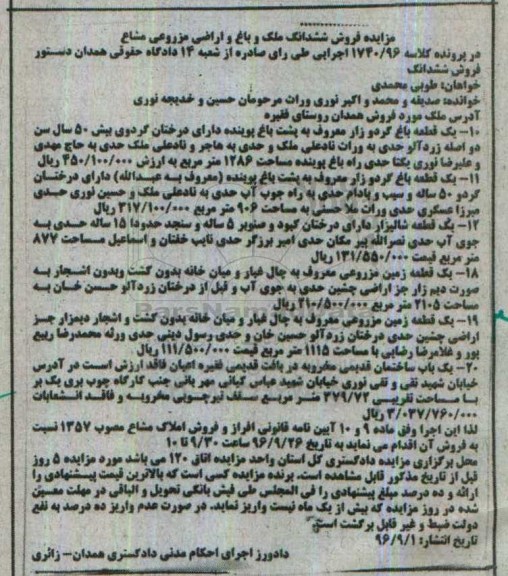 مزایده فروش ششدانگ ملک و باغ و اراضی مزروعی مشاع
در پرونده کلاسه ۱۷۴۰/۹۶ اجرایی طی رای صادره از شعبه ۱۴ دادگاه حقوقی همدان دستور
فروش ششدانگ
خواهان: طوبی محمدی
خوانده: صدیقه و محمد و اکبر نوری وراث مرحومان حسین و خدیجه نوری
آدرس ملک مورد فروش همدان روستای فقیره
۱۰- یک قطعه باغ گردو زار معروف به پشت باغ پوینده دارای درختان گردوی بیش ۵۰ سال سن
دو اصله زردآلو حدی به وراث نادعلی ملک و حدی به هاجر و نادعلی ملک حدی به حاج مهدی
و علیرضا نوری یکتا حدی راه باغ پوینده مساحت ۱۲۸۶ متر مربع به ارزش ۴۵۰/۱۰۰/۰۰۰ ریال
۱۱- یک قطعه باغ گردو زار معروف به پشت باغ پوینده (معروف به عبدالله) دارای درختان
گردو ۵۰ ساله و سیب و بادام حدی به راه جوب آب حدی به نادعلی ملک و حسین نوری حدی
میرزا عسکری حدی وراث ملا حسنی به مساحت ۹۰۶ متر مربع ۳۱۷/۱۰۰/۰۰۰ ریال
۱۲- یک قطعه شالیزار دارای درختان کبود و صنوبر ۵ ساله و سنجد حدودا ۱۵ ساله حدی به
جوی آب حدی نصرالله پیر مکان حدی امیر برزگر حدی نایب خفتان و اسماعیل مساحت ۸۷۷
متر مربع قیمت ۱۳۱/۵۵۰/۰۰۰ ریال
۱۸- یک قطعه زمین مزروعی معروف به چال غیار و میان خانه بدون کشت وبدون اشجار به
صورت دیم زار جز اراضی چشین حدی به جوی آب و قبل از درختان زردآلو حسن خان به
مساحت ۲۱۰۵ متر مربع ۲۱۰/۵۰۰/۰۰۰ ریال
۱۹- یک قطعه زمین مزروعی معروف به چال غبار و میان خانه بدون کشت و اشجار دیمزار جز
اراضی چشین حدی درختان زردآلو حسین خان و حدی رسول دینی حدی ورثه محمدرضا ربیع
پور و غلامرضا رضایی با مساحت ۱۱۱۵ متر مربع قیمت ۱۱۱/۵۰۰/۰۰۰ ریال
۲۰- یک باب ساختمان قدیمی مخروبه در بافت قدیمی فقیره اعیان فاقد ارزش است در آدرس
خیابان شهید تقی و نقی نوری خیابان شهید عباس کیانی مهر بانی جنب کارگاه چوب بری یک بر
با مساحت تقریبی ۳۷۹/۷۲ متر مربع سقف تیرچوبی مخروبه و فاقد انشعابات
۳/۰۳۷/۷۶۰/۰۰۰ ریال
لذا این اجرا وفق ماده ۹ و ۱۰ آیین نامه قانونی افراز و فروش املاک مشاع مصوب ۱۳۵۷ نسبت
به فروش آن اقدام می نماید به تاریخ ۹۶/۹/۲۶ ساعت ۹/۳۰ تا ۱۰
محل برگزاری مزایده دادگستری کل استان واحد مزایده اتاق ۱۲۰ می باشد مورد مزایده ۵ روز
قبل از تاریخ مذکور قابل مشاهده است. برنده مزایده کسی است که بالاترین قیمت پیشنهادی را
ارائه و ده درصد مبلغ پیشنهادی را فی المجلس طی فیش بانکی تحویل و الباقی در مهلت معین
شده در روز مزایده که بیش از یک ماه نیست واریز نماید. در صورت عدم واریز ده درصد به نفع
دولت ضبط و غیر قابل برگشت است.
تاریخ انتشار: ۹۶/۹/۱
دادورز اجرای احکام مدنی دادگستری همدان- زائری